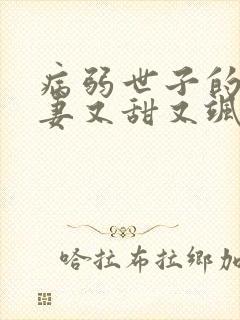 病弱世子的
妻又甜又颯
哈拉布拉鄉加